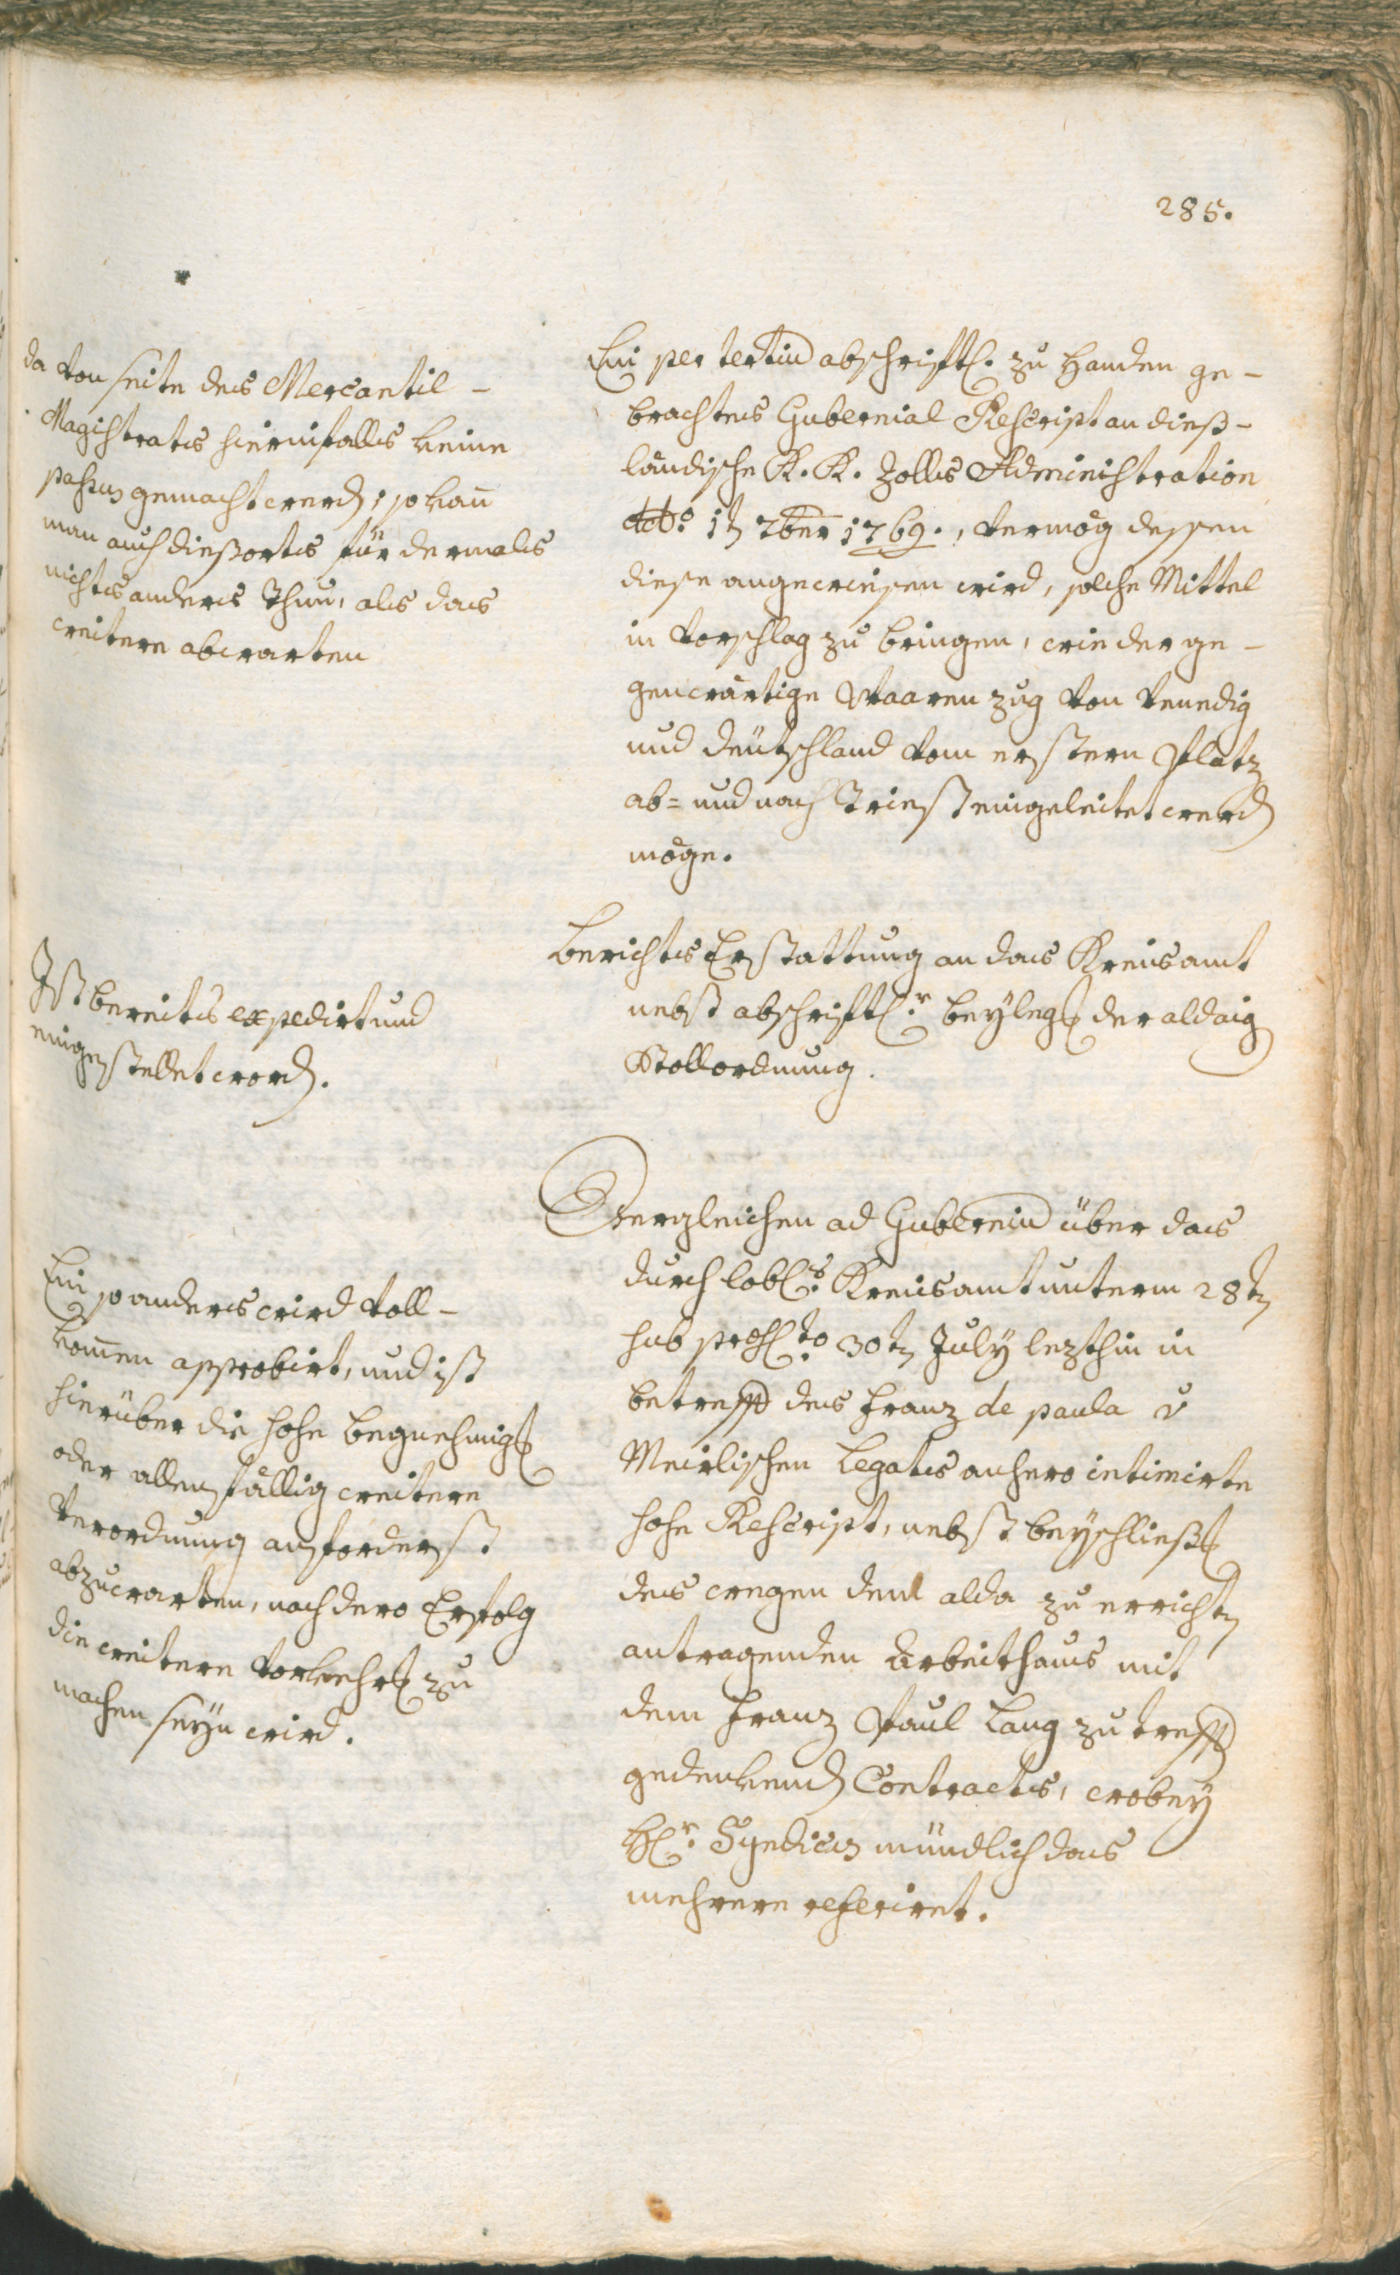 285.
da von seite des Mercantil-
Magistrats hierinfalls keine
passus gemacht werd, so kan̄
man auch diessorts für dermals
nichts anders Thun, als das
weitere abwarten
Ein per tertiu abschriftl. zu Handen ge-
brachtes Gubernial Rescript an dieß-
ländische K. K. Zolls Administration
ddto. 1t 7ber 1769., vermög dessen
diese angewiesen wird, solche Mittel
in Vorschlag zu bringen, wie der ge-
genwärtige Waaren zug von Venedig
und deütschland vom erstern Platz
ab- und nach Triest eingeleitet werd
möge.
Ist bereits expedirt und
eingestellet word.
Berichts Erstattung an das Kreisamt
nebst abschriftlr. beyleg der aldaig
Stollordnung.
Ein so anders wird voll-
kom̄en approbirt, und ist
hierüber die hohe begnehmig
oder allenfällig weitere
Verordnung anforderst
abzuwarten, nach dero Erfolg
die weitere Vorkehr zu
machen seyn wird.
Dergleichen ad Guberniu über das
durch lobls. Kreisamt unterm 28t
sub prsto 30t July lezthin in
betreff des Franz de paula v
Meirlischen Legats anhero intimirte
hohe Rescript, nebst beyschließ
des wegen dem alda zu erricht
antragenden Arbeithaus mit
dem Franz Paul Lang zu treff
gedenkend Contracts, wobey
Hr. Syndicus mündlich das
mehrere referiret.